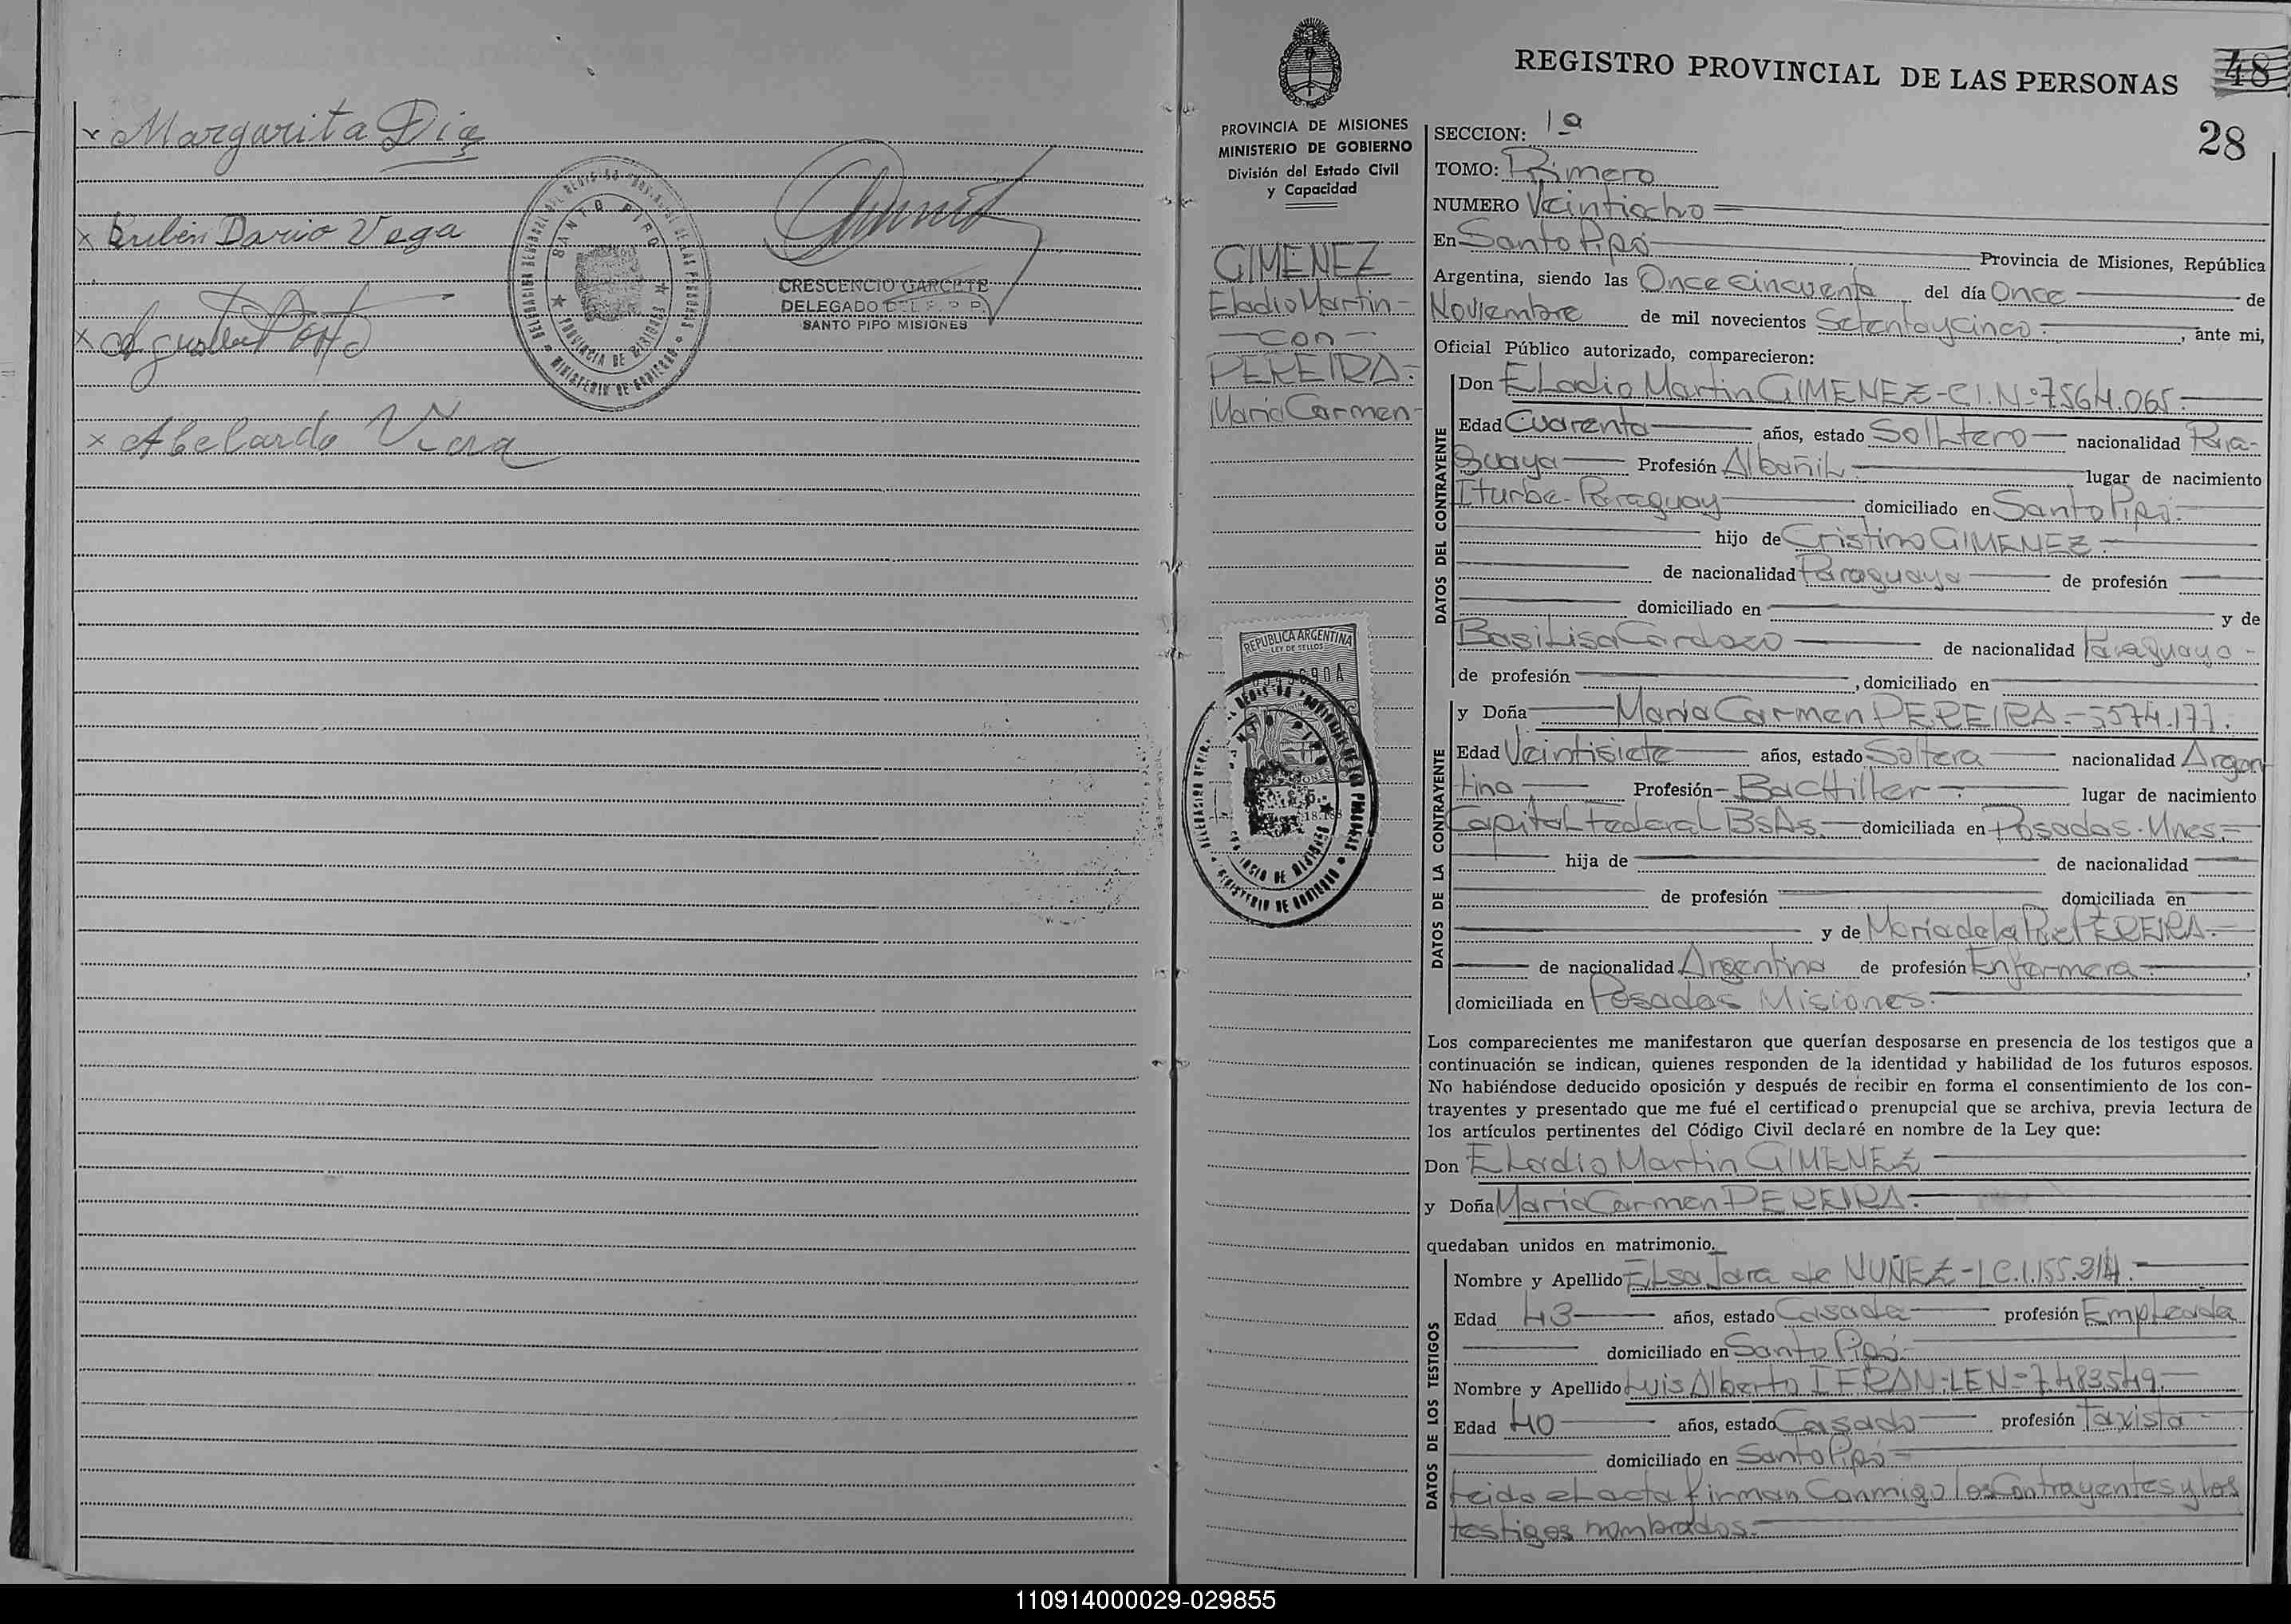 x Margarita Diaz
x Rubén Dario Vega
x
x Abelardo Viera
SANTO PIPO
PROVINCIA DE MISIONES
MINISTERIO DE GOBIERNO
CRESCENCIO GARCETE
DELEGADO DEL R. P. P.
SANTO PIPO MISIONES
REGISTRO PROVINCIAL DE LAS PERSONAS
48
28
PROVINCIA DE MISIONES
MINISTERIO DE GOBIERNO
División del Estado Civil
y Capacidad
GIMENEZ
Eladio Martin-
-con-
PEREIRA-
Maria Carmen-
REPUBLICA ARGENTINA
LEY DE SELLOS
SECCION: 1ª
TOMO: Primero
NUMERO Veintiocho
En Santo Pipó Provincia de Misiones, República
Argentina, siendo las Once cincuenta del día Once de
Noviembre de mil novecientos Setentaycinco-, ante mi,
Oficial Público autorizado, comparecieron:
DATOS DEL CONTRAYENTE
Don Eladio Martin GIMENEZ-C.I.Nº7564.065.-
Edad Cuarenta años, estado Solltero nacionalidad Para-
guaya Profesión Albañil lugar de nacimiento
Iturbe-Paraguay domiciliado en Santo Pipó.-
hijo de Cristino GIMENEZ.
de nacionalidad Paraguaya de profesión
domiciliado en y de
Basilisa Cardozo de nacionalidad Paraguaya-
de profesión , domiciliado en
DATOS DE LA CONTRAYENTE
y Doña Maria Carmen PEREIRA.-5574.177.
Edad Veintisiete años, estado Soltera nacionalidad Argen
tina Profesión- BacHiller lugar de nacimiento
Capital Federal BsAs. domiciliada en Posadas.Mnes,-
hija de de nacionalidad
de profesión domiciliada en
y de Maria de la Paz PEREIRA.-
de nacionalidad Argentina de profesión Enfermera ,
domiciliada en Posadas Misiones.
Los comparecientes me manifestaron que querían desposarse en presencia de los testigos que a
continuación se indican, quienes responden de la identidad y habilidad de los futuros esposos.
No habiéndose deducido oposición y después de recibir en forma el consentimiento de los con-
trayentes y presentado que me fué el certificado prenupcial que se archiva, previa lectura de
los artículos pertinentes del Código Civil declaré en nombre de la Ley que:
Don Eladio Martin GIMENEZ
y Doña Maria Carmen PEREIRA.-
quedaban unidos en matrimonio.
DATOS DE LOS TESTIGOS
Nombre y Apellido Elsa Jara de NUÑEZ-LC.1.155.314.-
Edad 43 años, estado Casada profesión Empleada
domiciliado en Santo Pipó.
Nombre y Apellido Luis Alberto IFRAN-LEN=7.483.549.-
Edad 40 años, estado Casado profesión Taxista-
domiciliado en Santo Pipó-
Leida el acta firman Conmigo los Contrayentes y los
testigos nombrados.
110914000029-029855